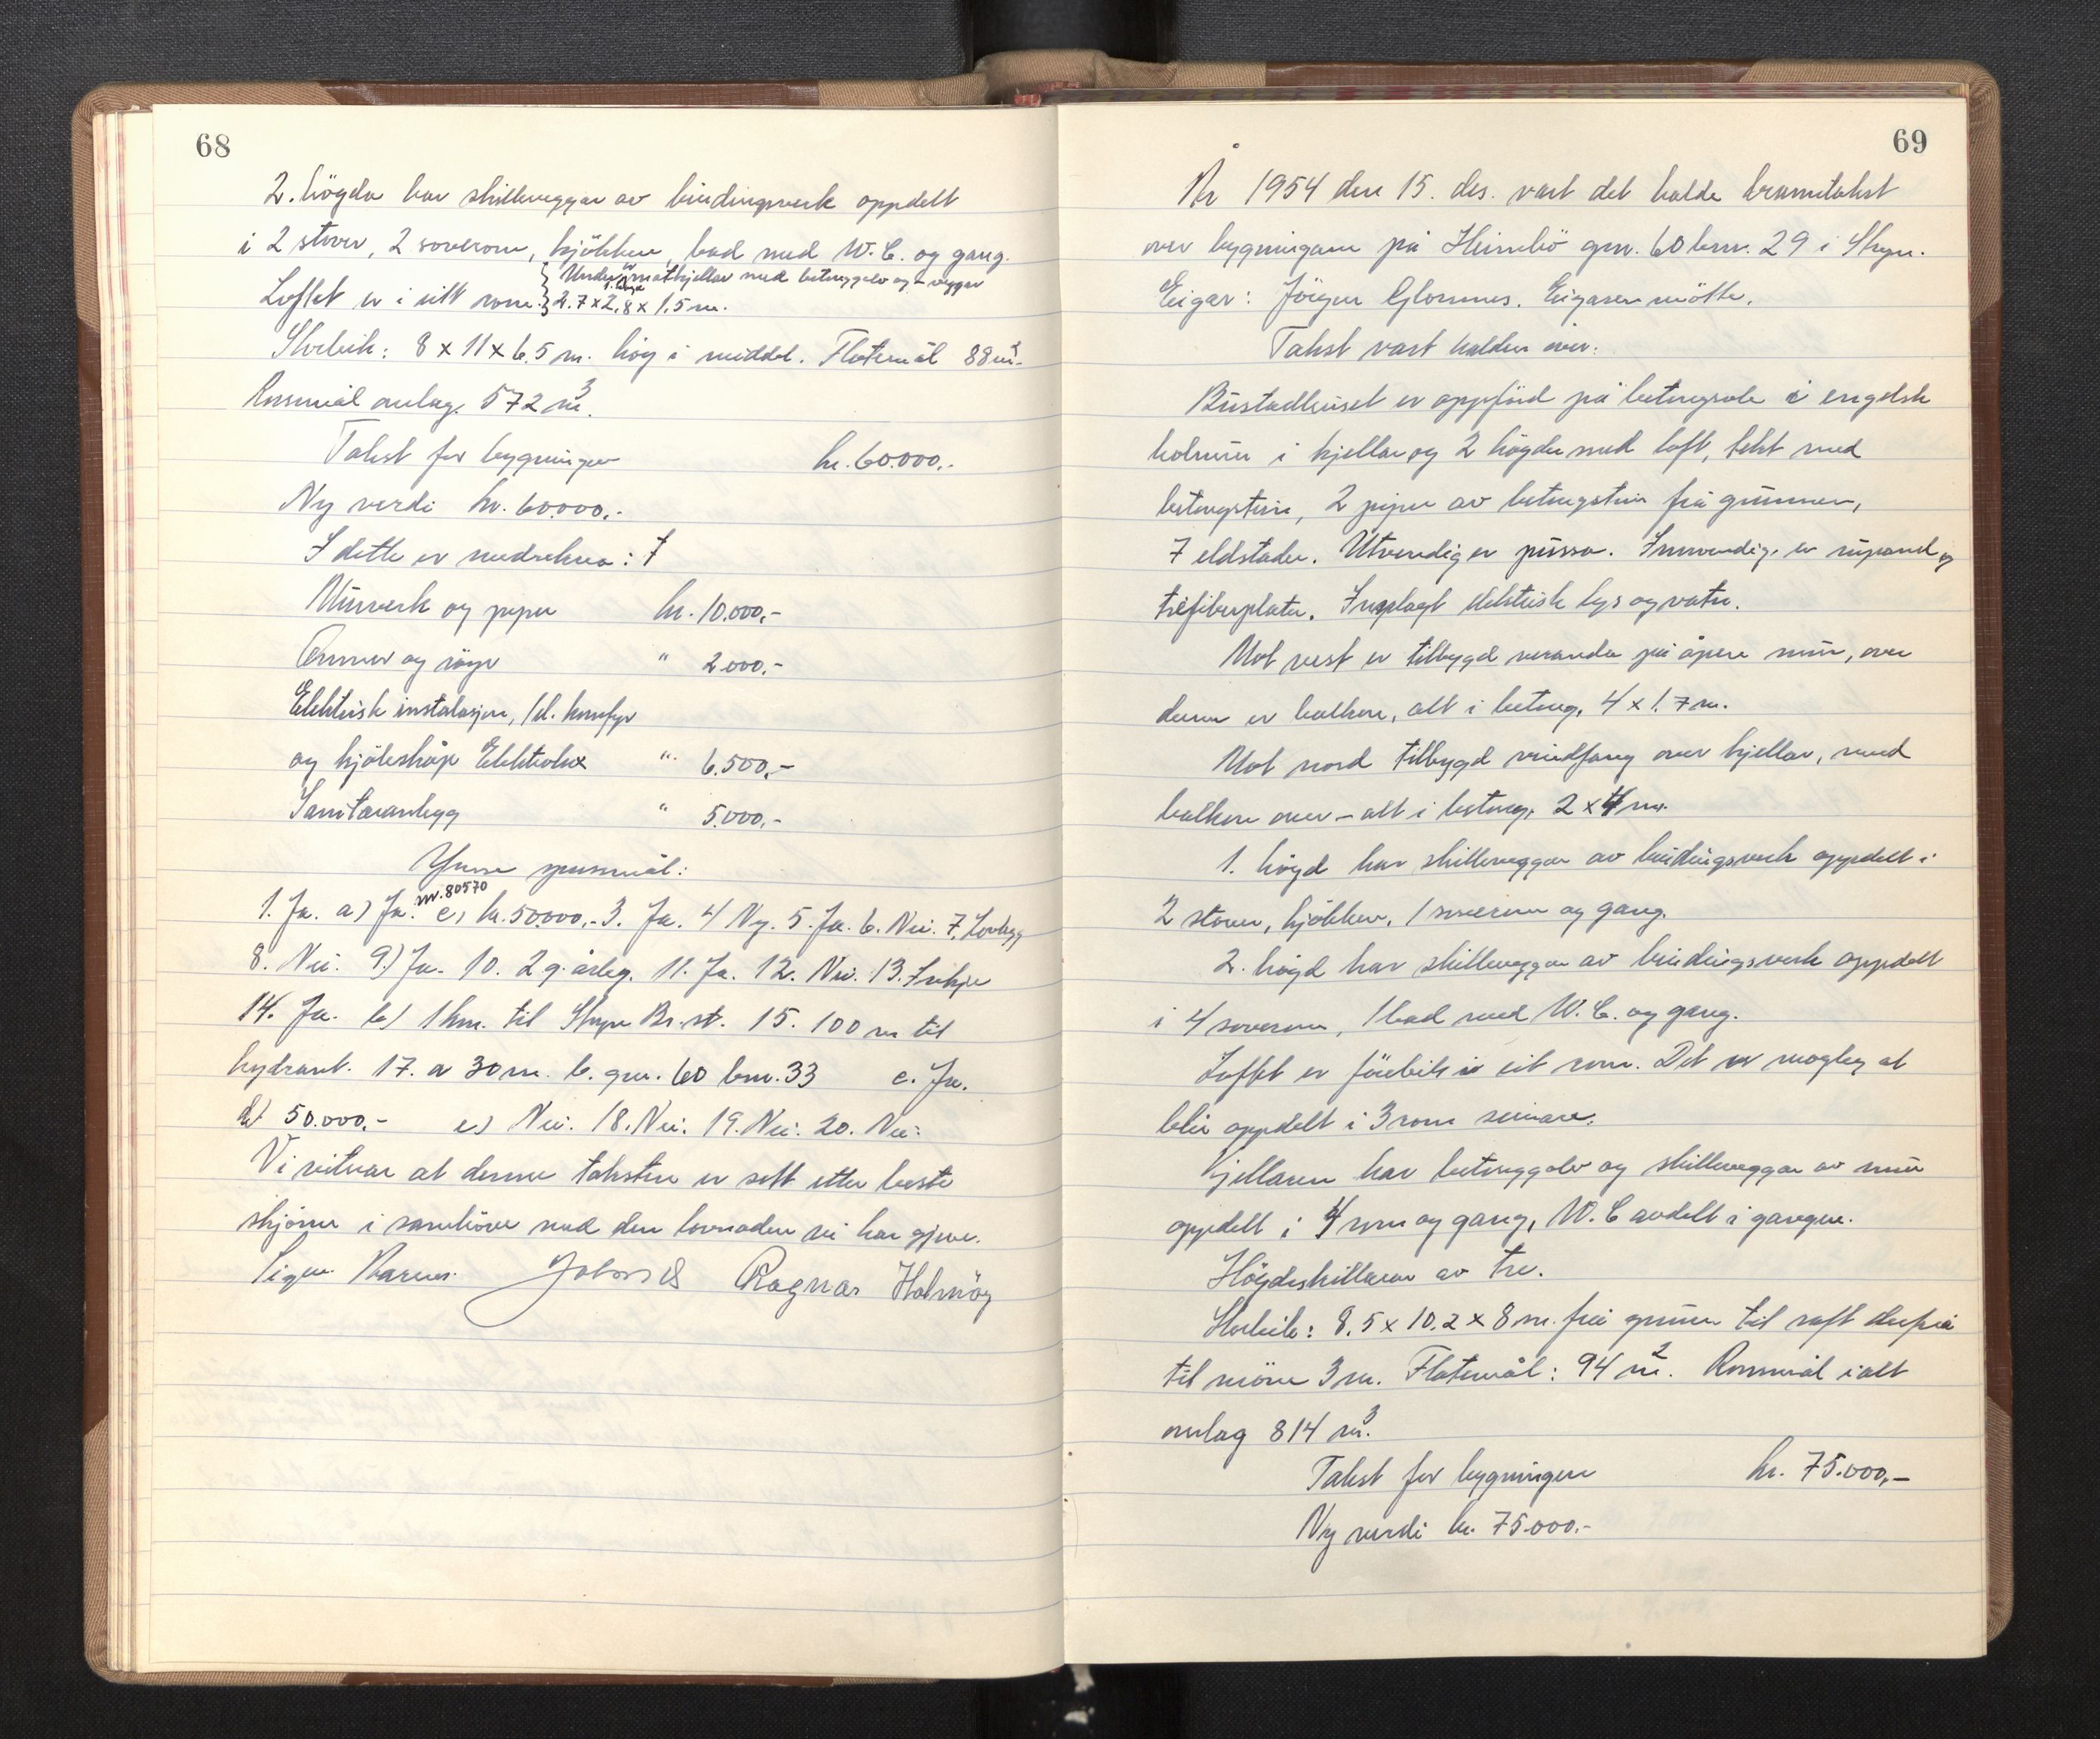 68
2. högda har skilleveggar av bindingsverk oppdelt
i 2 stover, 2 soverom, kjökken, bad med W.C. og gang.
Under er matkjellar med betonggolv og - veggar
Loftet er i eitt rom. 2.7 x 2,8 x 1,5 m.
Storleik: 8 x 11 x 6.5 m. høg i middel. Flatemål 88 m².
Rommål omlag. 572 m³.
Takst for bygningen kr. 60.000,-
Ny verdi kr. 60.000,-
I dette er medrekna:
Murverk og piper kr. 10.000,-
Omner og rör " 2.000,-
Elektrisk instalasjon, 1 el. komfyr
og kjöleskåp Elektrolux " 6.500,-
Sanitæranlegg " 5.000,-
Ymse spursmål:
nr. 80570
1. Ja. a) Ja. c) kr. 50.000,- 3. Ja. 4 Ny. 5. Ja. 6. Nei. 7.
8. Nei. 9.) Ja. 10. 2 g. årleg. 11. Ja. 12. Nei. 13. Inkje
14. Ja. b) 1 km. til Stryn Br.st. 15. 100 m til
hydrant. 17. a 30 m. b. gnr. 60 bnr. 33 c. Ja.
d) 50.000,- e) Nei. 18. Nei. 19. Nei. 20. Nei.
Vi vitnar at denne taksten er sett etter beste
skjönn i samhöve med den lovnaden vi har gjeve.
Ragnar Holmöy
69
År 1954 den 15. des. vart det halde branntakst
over bygningane på Heimbö gnr. 60 bnr. 29 i Stryn.
Eigar: Jörgen Glomnes. Eigaren mötte.
Takst vart halden över:
Bustadhuset er oppförd på betongsole i engelsk
holmur i kjellar og 2 högder med loft, tekt med
betongstein, 2 piper av betongstein frå grunnen,
7 eldstader. Utvendig er pussa. Innvendig er rupanel og
trefiberplater. Innlagt elektrisk lys og vatn.
Mot vest er tilbygd veranda på åpen mur, over
denne er balkon, alt i betong, 4 x 1.7 m.
Mot nord tilbygd vindfang over kjellar, med
balkon over - alt i betong, 2 x 4 m.
1. högd har skilleveggar av bindingsverk oppdelt i
2 stover, kjökken, 1 soverom og gang.
2. högd har skilleveggar av bindingsverk oppdelt
i 4 soverom, 1 bad med W.C. og gang.
Loftet er förebils i eit rom. Det er mogleg at
blir oppdelt i 3 rom seinare.
Kjellaren har betonggolv og skilleveggar av mur
oppdelt i 4 rom og gang, W.C avdelt i gangen.
Högdeskillarar av tre.
Storleik: 8.5 x 10.2 x 8 m. frå grunn til raft derfrå
til möne 3 m. Flatemål: 94 m². Rommål ialt
omlag 814 m³.
Takst for bygningen kr. 75.000,-
Ny verdi kr. 75.000.-